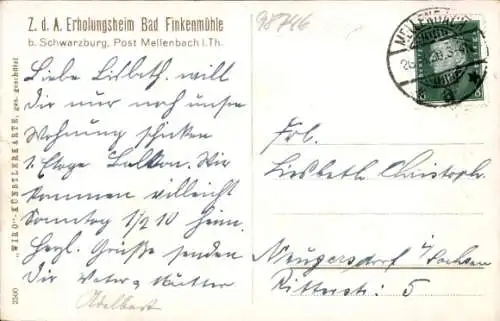 Z. d. A. Erholungsheim Bad Finkenmühle
b. Schwarzburg, Post Mellenbach i. Th.
98746
Liebe Lisbeth. will
dir nur noch unsre
Wohnung schicken
1. Etage Balkon. Wir
kommen villeicht
Sonntag 1/2 10 heim.
Herzl. Grüße senden
dir Vater u Mutter
Adelbert
Frl.
Liesbeth Christoph.
Neugersdorf i/Sachsen
Ritterstr: 5
"WIRO"-KÜNSTLERKARTE, ges. geschützt
2560
8 8